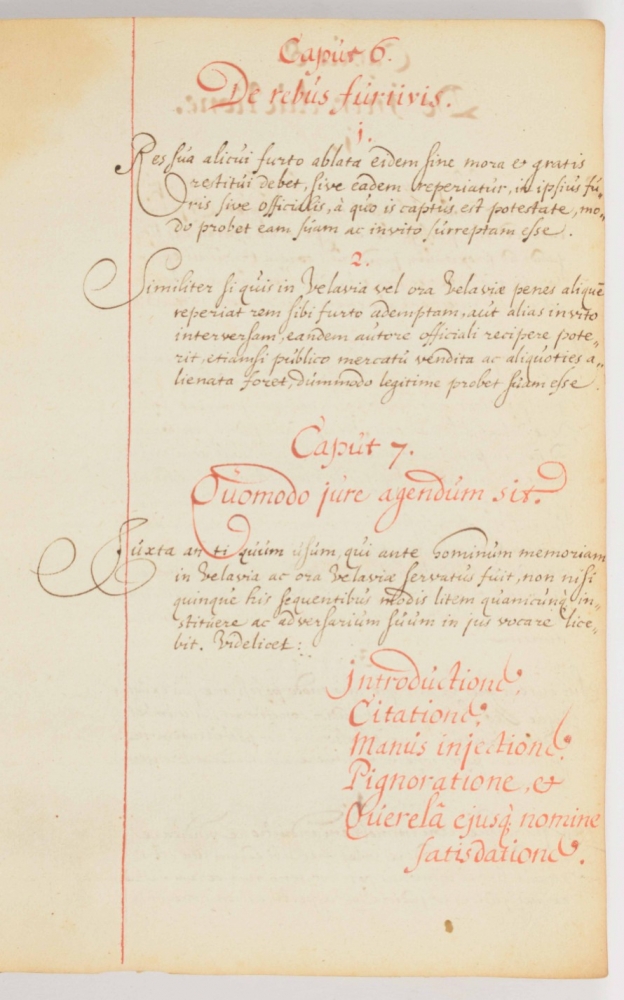 Caput 6.
De rebus furtivis.
1.
Res sua alicui furto ablata eidem sine mora & gratis
restitui debet, sive eadem reperiatur, in ipsius fu„
ris sive officialis, à quo is captus est potestate, mo„
do probet eam suam ac invito surreptam esse.
2.
Similiter si quis in Velavia vel ora Velaviæ penes aliquē
reperiat rem sibi furto ademptam, aut alias invito
interversam, eandem autore officiali recipere pote„
rit, etiamsi publico mercatu vendita ac aliquoties a„
lienata foret, dummodo legitime probet suam esse.
Caput 7.
Quomodo jure agendum sit.
Juxta antiquum usum, qui ante hominum memoriam
in Velavia ac ora Velaviæ servatus fuit, non nisi
quinque his sequentibus modis litem quamcunq̨ in„
stituere ac adversarium suum in jus vocare lice„
bit. Videlicet:
Introductione.
Citatione.
Manus injectione.
Pignoratione, &
Querelâ ejusq̨ nomine
satisdatione.